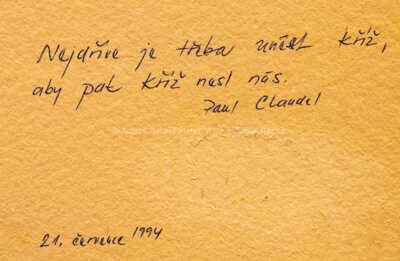 Nejdříve je třeba unést kříž,
aby pak kříž nesl nás.
Paul Claudel
21. července 1994